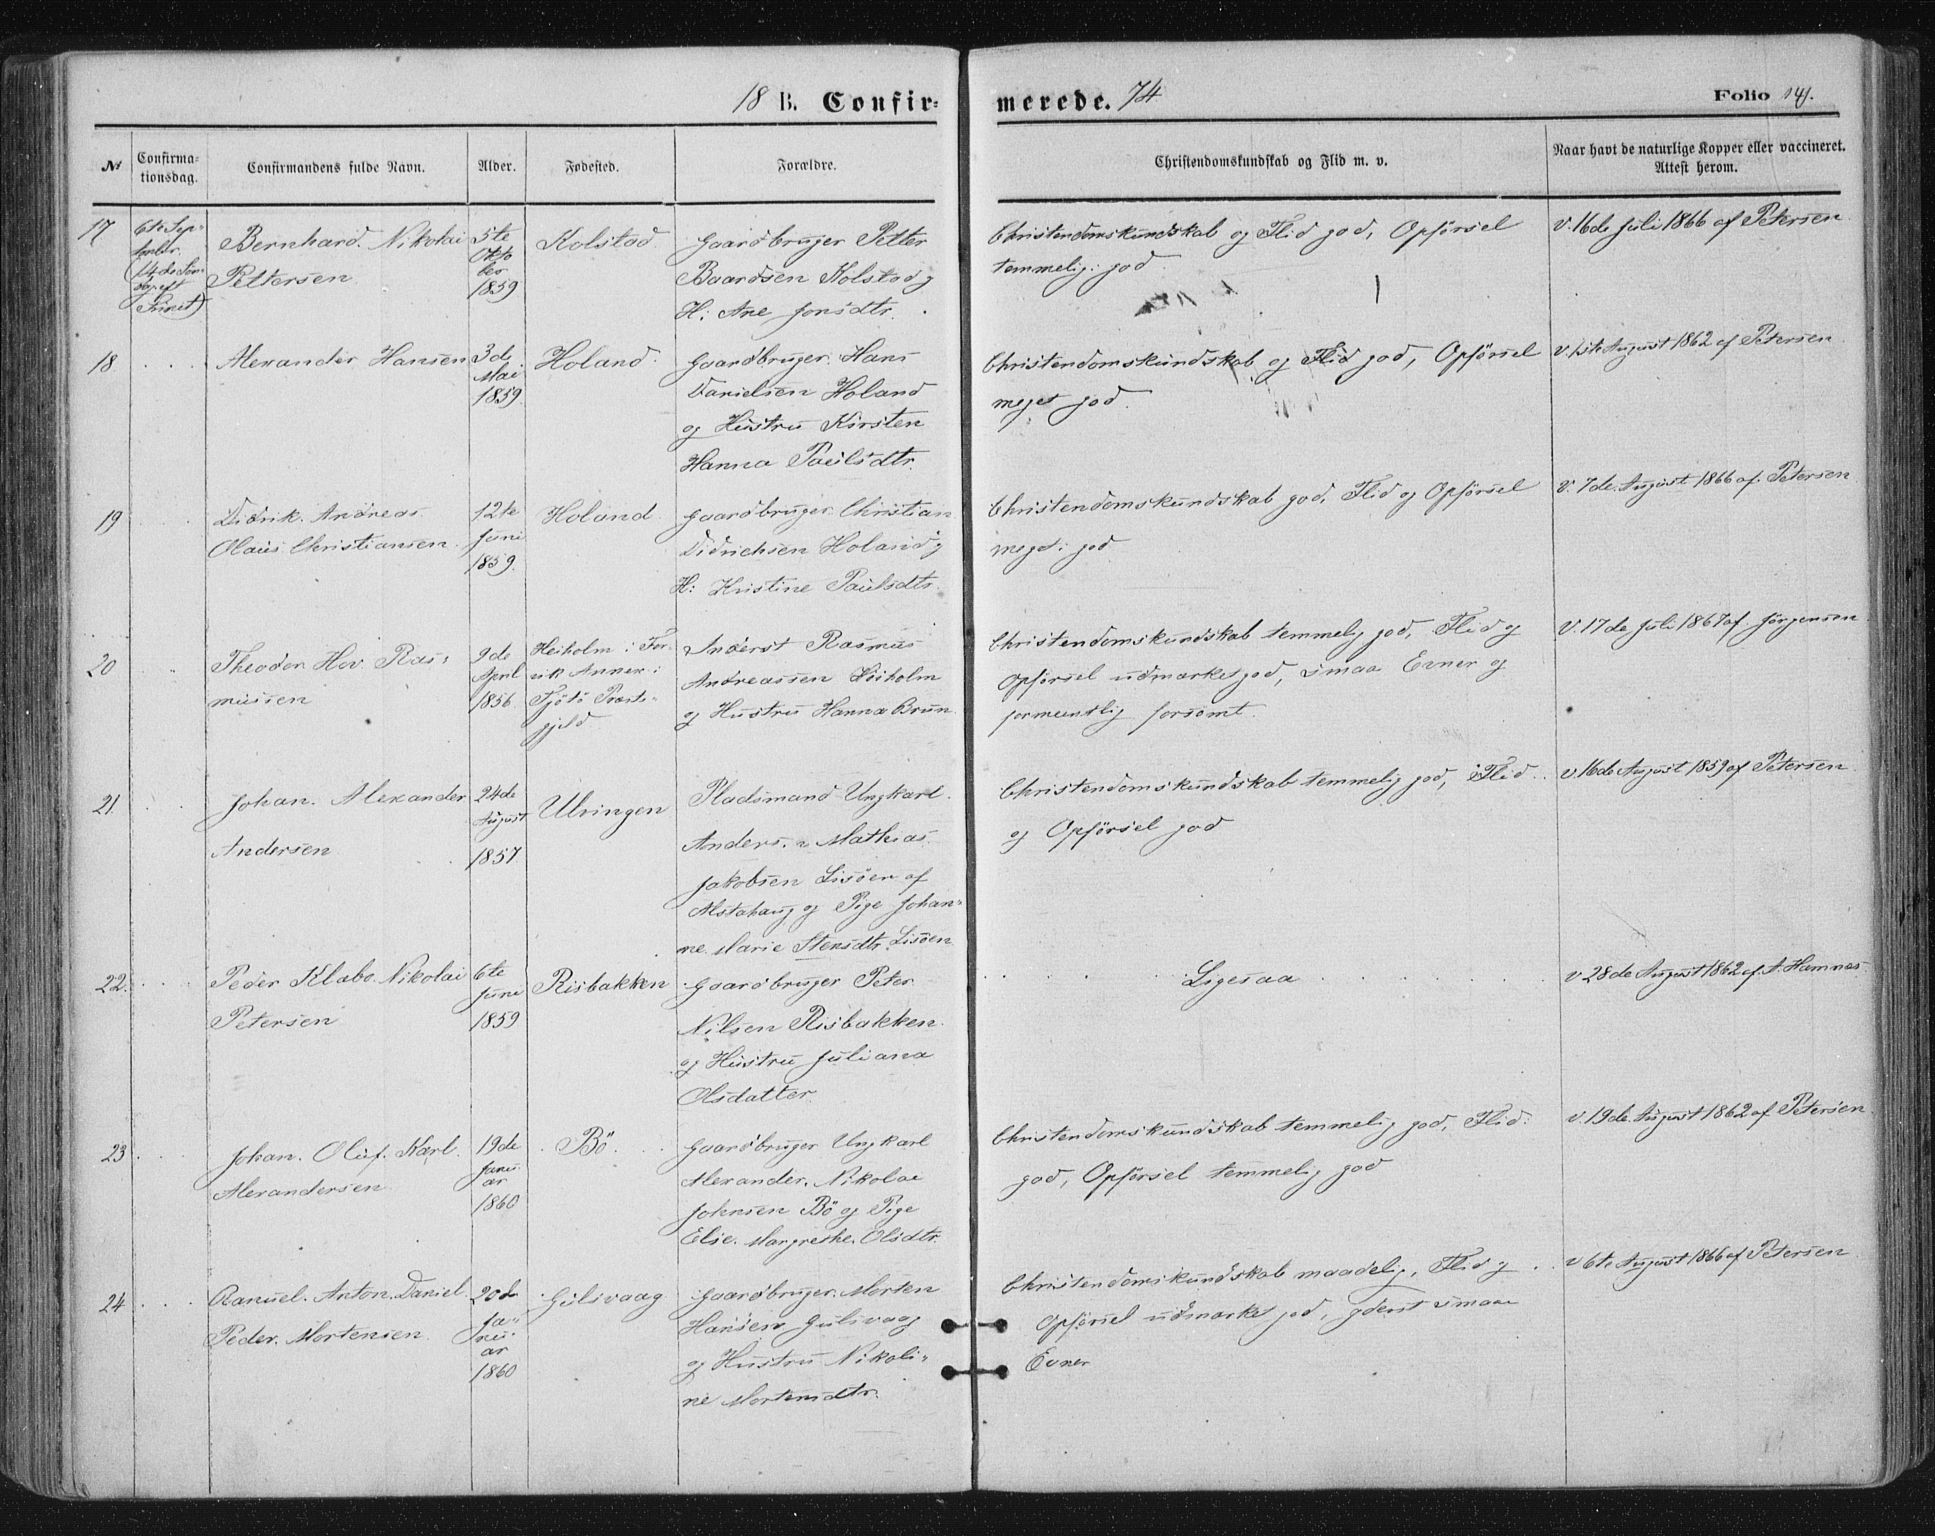 18 B. Confir- merede. 74 Folio 141.
№ Confirma-
tionsdag. Confirmandens fulde Navn. Alder. Fødested. Forældre. Christendomskundskab og Flid m. v. Naar havt de naturlige Kopper eller vaccineret.
Attest herom.
17 6te Sep-
tmbr.
(14de Søn-
dag eft
Trinit)
Bernhard Nikolai
Pettersen
5te
Okto
ber
1859
Kolstad
Gaardbruger Petter
Baardsen Kolstad og
H: Ane Jonsdtr.
Christendomskundskab og Flid god, Opførsel
temmelig god
v. 16de Juli 1866 af Petersen
18
Alexander Hansen
3de
Mai
1859
Holand
Gaardbruger Hans
Danielsen Holand
og Hustru Kirsten
Hanna Paulsdtr.
Christendomskundskab og Flid god, Opførsel
meget god.
v. 1ste August 1862 af Petersen
19
Didrik Andreas
Olaus Christiansen
12te
Juni
1859.
Holand
Gaardbruger Christian
Didrichsen Holand og
H: Kristine Paulsdtr.
Christendomskundskab god, Flid og Opførsel
meget god
v. 7de August 1866 af Petersen
20
Theodor Hov Ras-
mussen
9de
April
1856
Heiholm i For-
vik Annex i
Tjøtø Præste-
gjeld
Inderst Rasmus
Andreassen Höiholm
og Hustru Hanna Brun
Christendomskundskab temmelig god, Flid og
Opførsel udmærket god, smaa Evner og
formentlig forsømt.
V. 17de Juli 1867 af Jørgensen
21
Johan Alexander
Andersen
24de
August
1857
Ulvingen
Pladsmand Ungkarl
Anders Mathias
Jakobsen Lisøen af
Alstahaug og Pige Johan-
ne Marie Stensdtr. Lisøen
Christendomskundskab temmelig god, Flid
og Opførsel god
v. 16de August 1859 af Petersen
22
Peder Klabo Nikolai
Petersen
6te
Juni
1859
Risbakken
Gaardbruger Peter
Nilsen Risbakken
og Hustru Juliana
Olsdatter
Ligesaa
v 28de August 1862 af A. Hamnes
23
Johan Oluf Karl
Alexandersen
19de
Janu-
ar
1860
Bö
Gaardbruger Ungkarl
Alexander Nikolai
Johnsen Bö og Pige
Elsie Margrethe Olsdtr.
Christendomskundskab temmelig god, Flid
god, Opførsel temmelig god
v. 19de August 1862 af Petersen
24
Ranuel Anton Daniel
Peder Mortensen
20de
Ja-
nu-
ar
1860
Gulsvaag
Gaardbruger Morten
Hansen Gulsvaag
og Hustru Nikoli-
ne Mortensdtr.
Christendomskundskab maadelig, Flid og
Opførsel udmærket god, yderst smaa
Evner
v 6te August 1866 af Petersen